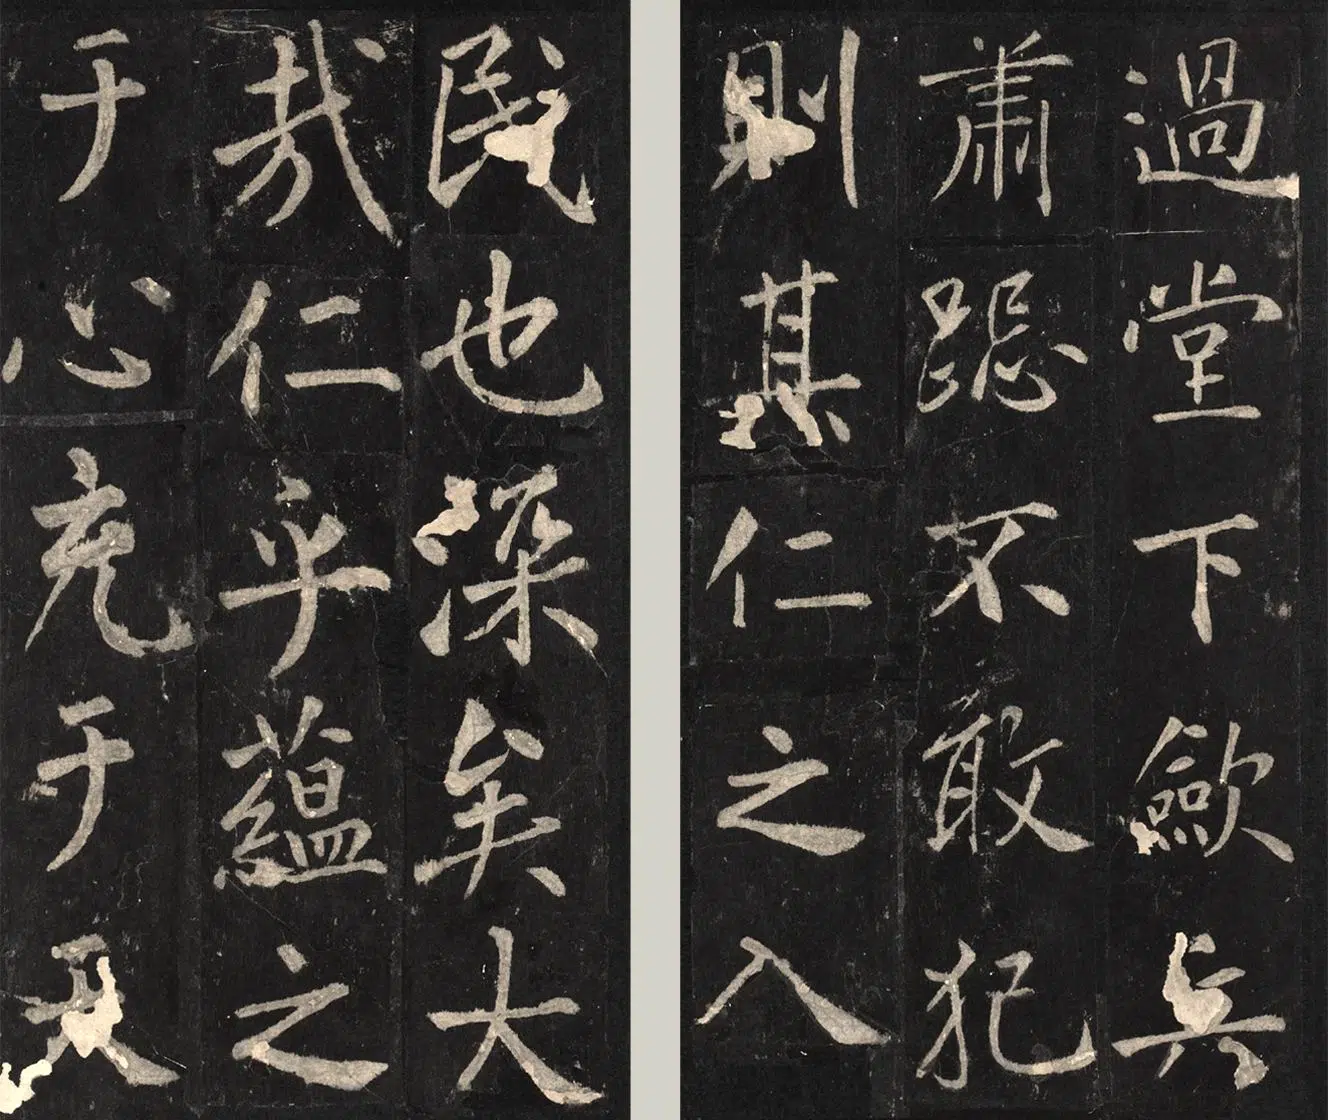 過堂下歛兵
肅跽不敢犯
則其仁之入
民也深矣大
哉仁乎蘊之
于心充于天